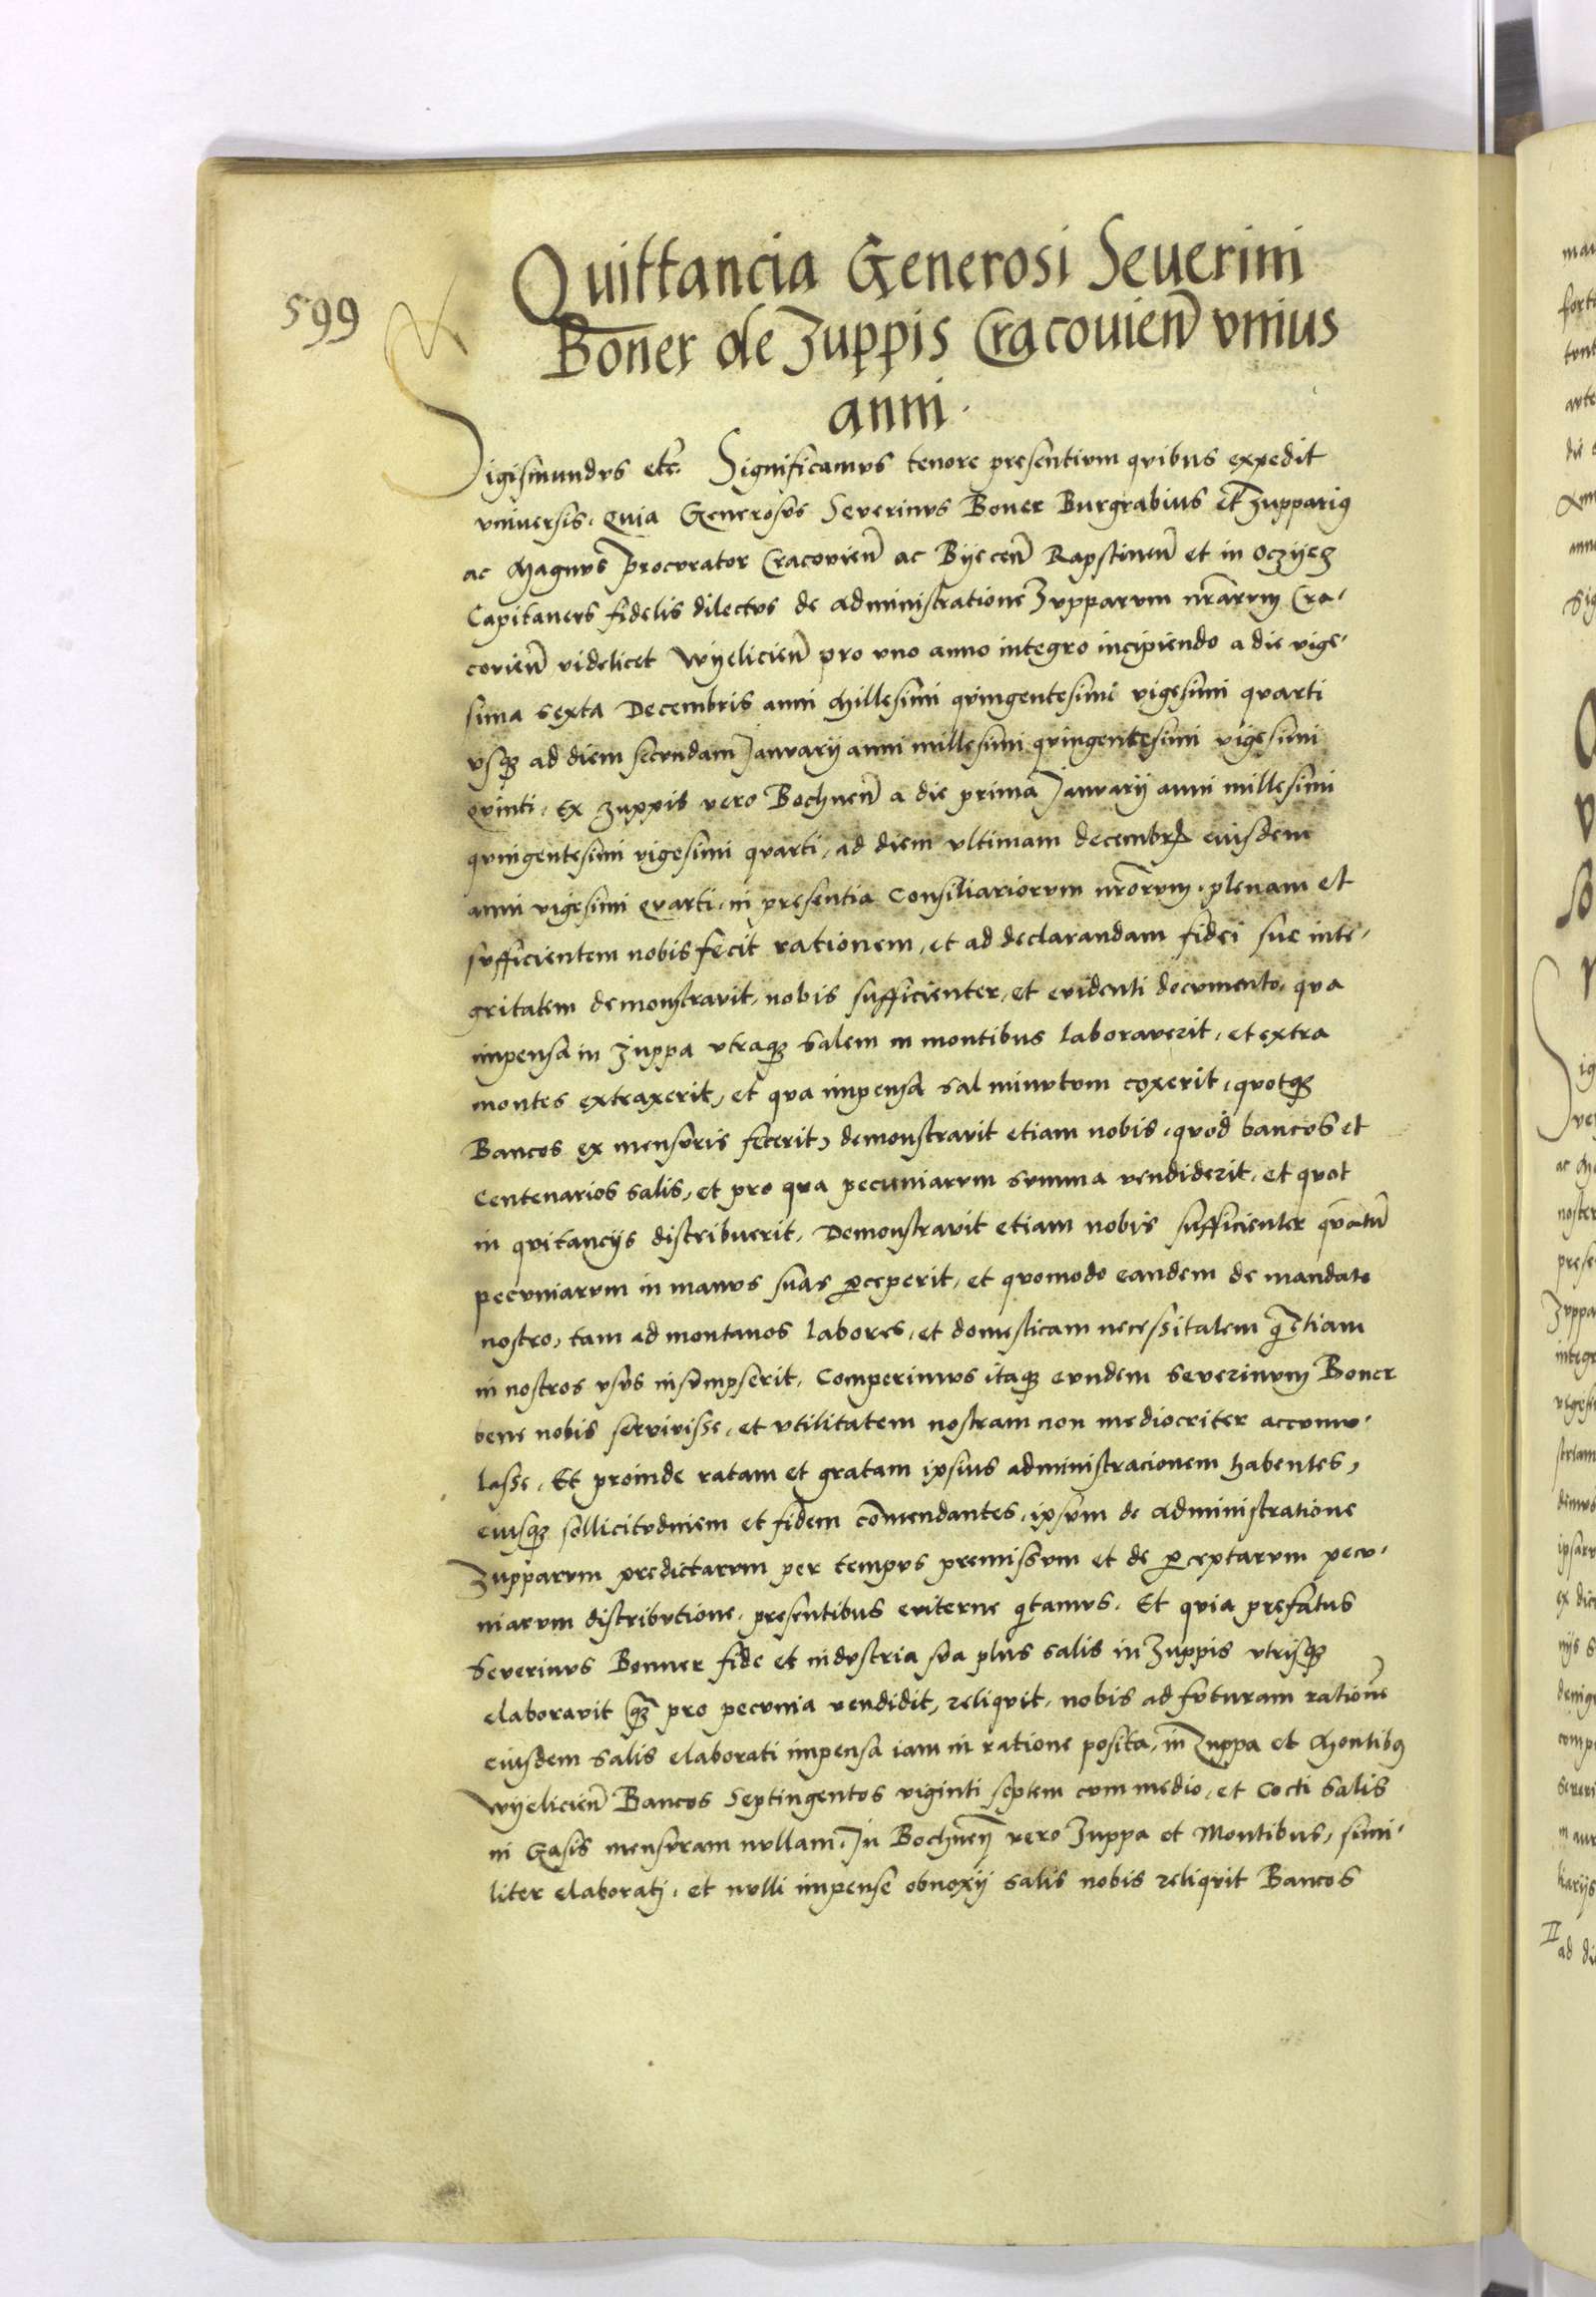 599
Quittancia Generosi Seuerini
Boner de Zuppis Cracouien̄ vnius
anni.
Sigismundvs etc̄. Significamvs tenore presentivm qvibus expedit
vniversis. qvia Generosvs Severinvs Boner Burgrabius et Zupparig
ac Magnvs procvrator Cracovien̄ ac Byecen̄ Rapstinen̄ et in Oczijecz
Capitanevs fidelis dilectvs de administratione Zvpparvm nr̄arvm Cra-
covien̄ videlicet Wyelicien̄ pro vno anno integro incipiendo a die vige-
sima sexta Decembris anni Millesimi qvingentesimi vigesimi qvarti
vsqꝫ ad diem secvndam Janvarij anni millesimi qvingentesimi vigesimi
qvinti. Ex zuppis vero Bochnen̄ a die prima Janvarij anni millesimi
qvingentesimi vigesimi qvarti, ad diem vltimam decembrꝭ eiusdem
anni vigesimi qvarti. in presentia Consiliariorvm nr̄orvm. plenam et
svfficientem nobis fecit rationem, et ad declarandam fidei sue inte-
gritatem demonstravit, nobis sufficienter, et evidenti docvmento. qva
impensa in Zuppa vtraqꝫ salem in montibus laboraverit, et extra
montes extraxerit, et qva impensa sal minvtvm coxerit, qvotqꝫ
Bancos ex mensvris fecerit, demonstravit etiam nobis, qvod bancos et
Centenarios salis, et pro qva pecuniarvm svmma vendiderit, et qvot
in qvitancijs distribuerit, Demonstravit etiam nobis sufficienter qvātū
pecvniarvm in manvs suas ꝑceperit, et qvomodo eandem de mandato
nostro, tam ad montanos labores, et domesticam necessitatem q̄ etiam
in nostros vsvs insvmpserit. Comperimvs itaqꝫ evndem Severinvm Boner
bene nobis servivisse, et vtilitatem nostram non mediocriter accvmv-
lasse. Et proinde ratam et gratam ipsius administracionem habentes,
eiusqꝫ sollicitvdinem et fidem com̄endantes, ipsvm de administratione
Zupparvm predictarvm per tempvs premissvm et de ꝑceptarvm pecv-
niarvm distribvtione. presentibus eviterne qitamvs. Et qvia prefatus
Severinvs Bonner fide et indvstria sva plus salis in Zuppis vtrisqꝫ
elaboravit qꝫ pro pecvnia vendidit, reliqvit, nobis ad fvturam ration̄e
eiusdem salis elaborati impensa iam in ratione posita, in Zuppa et Montibꝰ
Wyelicien̄ Bancos Septingentos viginti septem cvm medio, et Cocti Salis
in Casis mensvram nvllam. In Bochnen̄ vero Zuppa et Montibus, simi-
liter elaboratj. et nvlli impense obnoxij salis nobis reliqvit Bancos